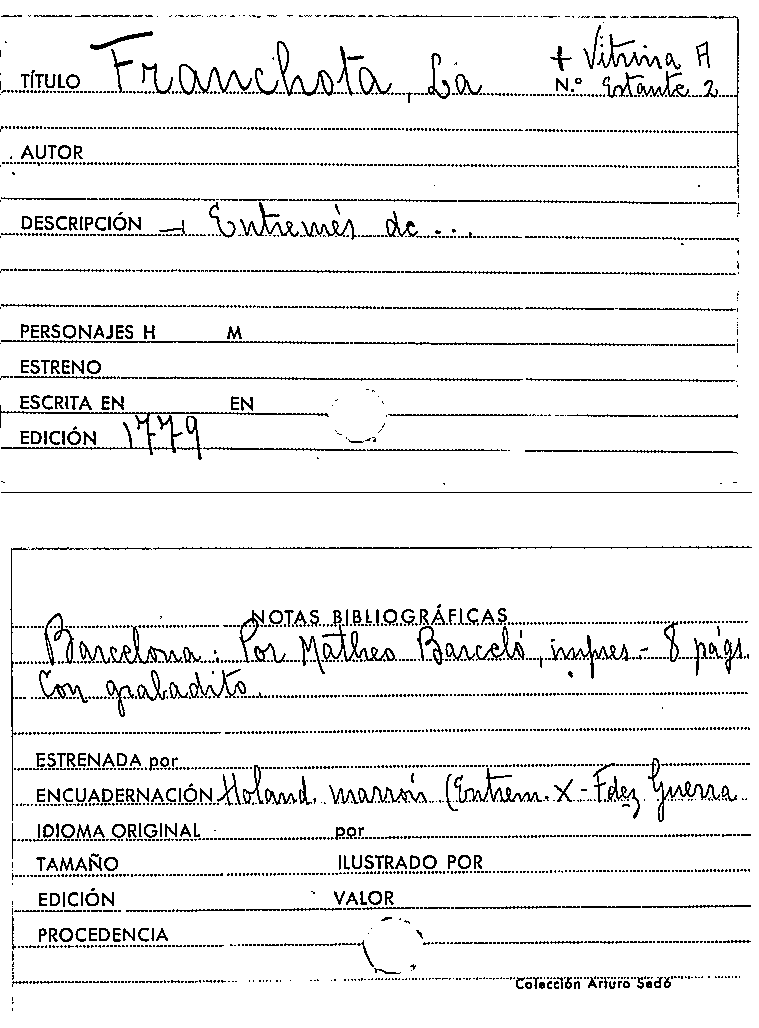 TÍTULO Franchota, La + Vitrina A
N.º Estante 2
AUTOR
DESCRIPCIÓN → Entremés de ...
PERSONAJES H M
ESTRENO
ESCRITA EN EN
EDICIÓN 1779
NOTAS BIBLIOGRÁFICAS
Barcelona: Por Matheo Barceló, impres - 8 págs.
Con grabadito.
ESTRENADA por
ENCUADERNACIÓN Holand. marrón (Entrem. X - Fdez Guerra
IDIOMA ORIGINAL por
TAMAÑO ILUSTRADO POR
EDICIÓN VALOR
PROCEDENCIA
Colección Arturo Sedó